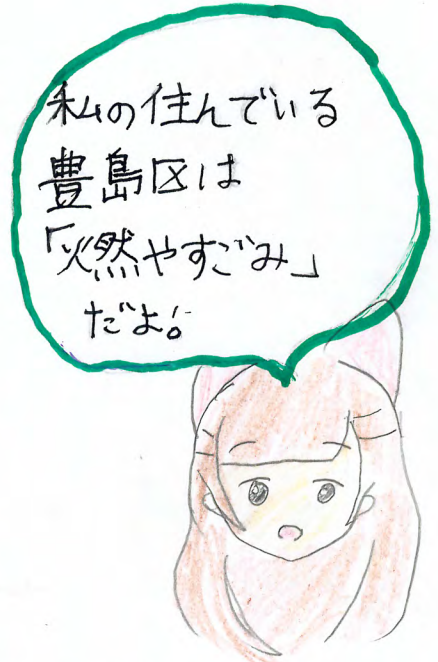 私の住んでいる
豊島区は
「燃やすごみ」
だよ!